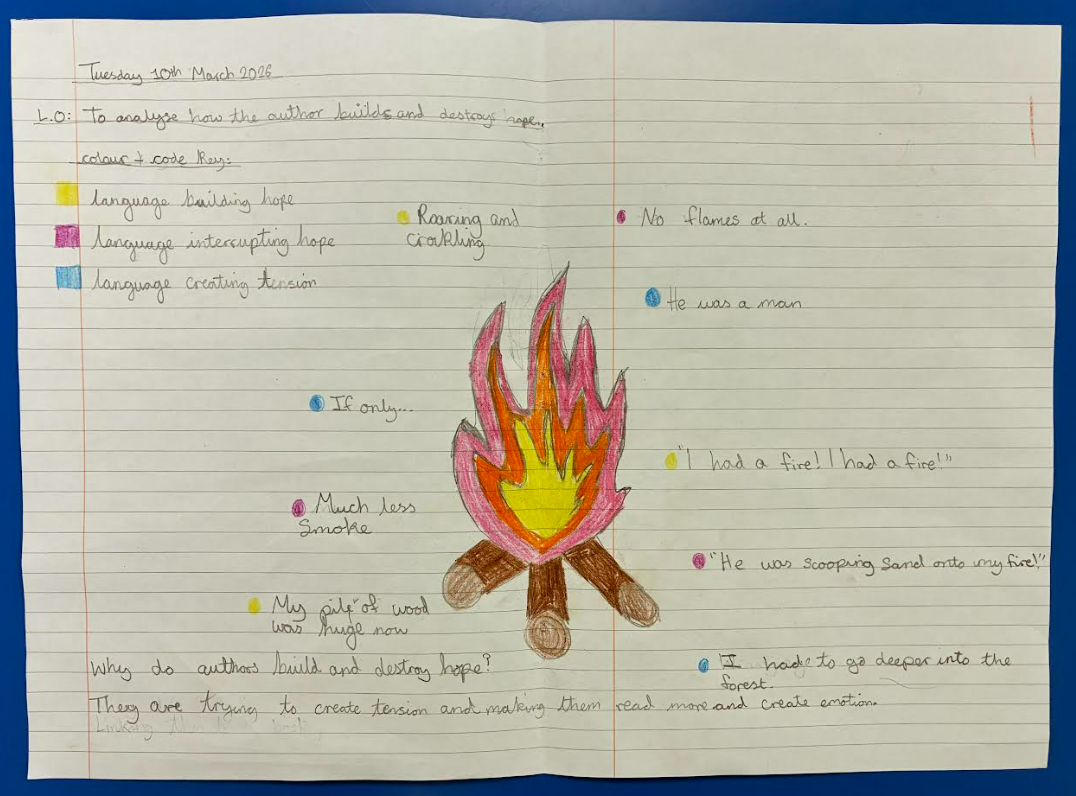 Tuesday 10th March 2026
L.O: To analyse how the author builds and destroys hope.
colour + code Key:
language building hope
language interrupting hope
language creating tension
Roaring and
crakling
No flames at all.
He was a man
If only...
"I had a fire! I had a fire!"
Much less
Smoke
"He was scooping Sand onto my fire!"
My pile of wood
was huge now
I had to go deeper into the
forest.
Why do authors build and destroy hope?
They are trying to create tension and making them read more and create emotion.
Linking